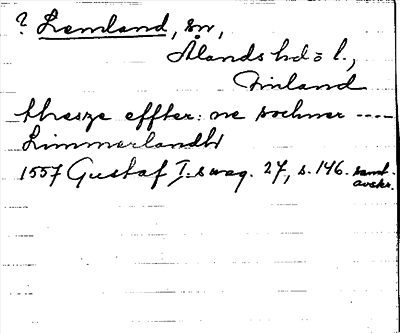 ? Lemland, sn,
Ålands hd o l.,
Finland
thesze effter: ne sochner ----
Limmerlandh
1557 Gustaf I:s reg. 27, s. 146. samt.
avskr.